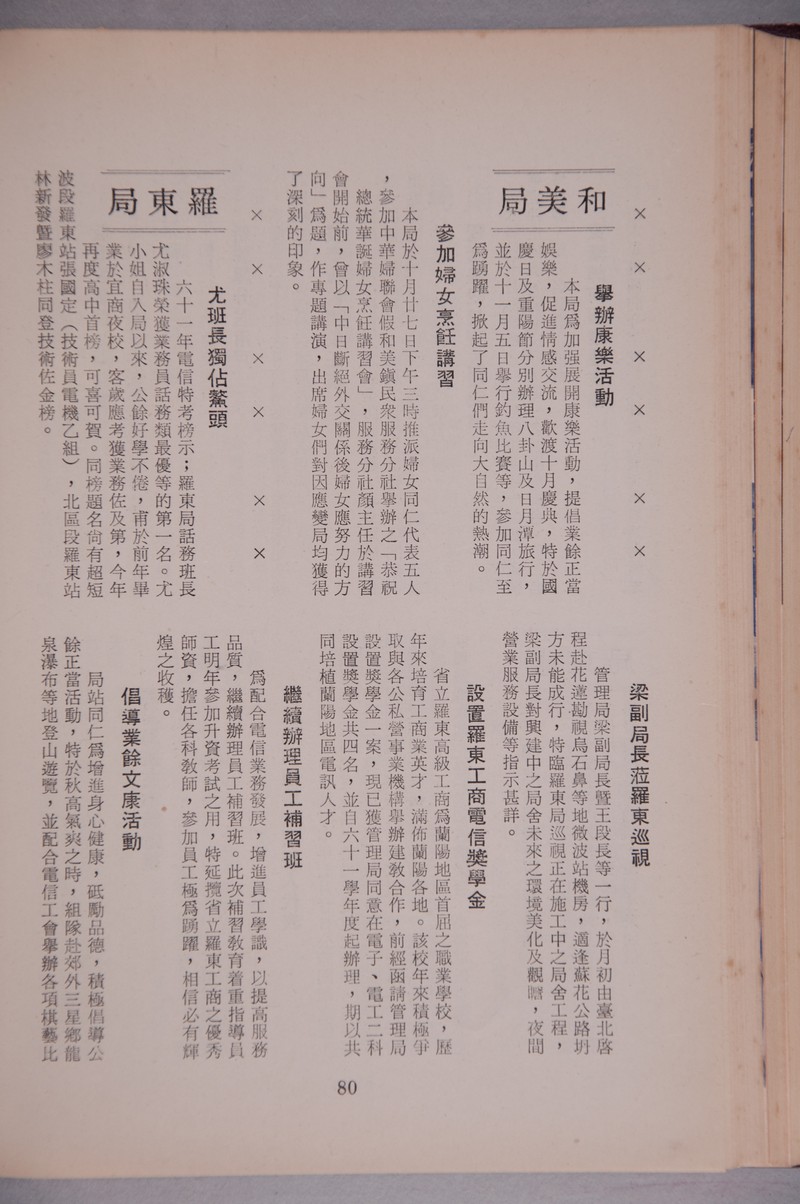 × × × × × ×
和美局
舉辦康樂活動
本局爲加强展開康樂活動，提倡業餘正當
娛樂，促進情感交流，歡渡十月慶典，特於國
慶日及重陽節分別辦理八卦山及日月潭旅行，
並於十一月五日舉行釣魚比賽等，參加同仁至
爲踴躍，掀起了同仁們走向大自然的熱潮。
參加婦女烹飪講習
本局於十月廿七日下午三時推派婦女同仁代表五人
，參加中華婦聯會假和美鎭民衆服務分社舉辦之「恭祝
總統華誕婦女烹飪講習會」，服務分社顏主任於講習
會開始前，曾以「中日斷絕外交關係後婦女應努力的方
向」爲題，作專題講演，出席婦女們對因應變局均獲得
了深刻的印象。
× × × × × ×
羅東局
尤班長獨佔鰲頭
六十一年電信特考榜示；羅東局話務班長
尤淑珠榮獲業務員話務類最優等的第一名。尤
小姐自入局以來，公餘好學不倦，甫於前年畢
業於宜商夜校，客歲應考獲業務佐及第，今年
再度高中首榜，可喜可賀。同榜題名尙有超短
波段羅東站張國定（技術員電機乙組），北區段羅東站
林新發暨廖木柱同登技術佐金榜。
梁副局長蒞羅東巡視
管理局梁副局長暨王段長等一行，於月初由臺北啓
程赴花蓮勘視烏石鼻等地微波站機房，適逢蘇花公路坍
方未能成行，特臨羅東局巡視正在施工中之局舍工程，
梁副局長對興建中之局舍未來之環境美化及觀瞻，夜間
營業服務設備等指示甚詳。
設置羅東工商電信獎學金
省立羅東高級工商爲蘭陽地區首屈之職業學校，歷
年來培育工商業英才，滿佈蘭陽各地。該校年來積極爭
取與各公私營事業機構舉辦建敎合作，前經函請管理局
設置獎學金一案，現已獲管理局同意在電子、電工二科
設置獎學金共四名，並自六十一學年度起辦理，期以共
同培植蘭陽地區電訊人才。
繼續辦理員工補習班
爲配合電信業務發展，增進員工學識，以提高服務
品質，繼續辦理員工補習班。此次補習敎育着重指導員
工明年參加升資考試之用，特延攬省立羅東工商之優秀
師資，擔任各科敎師，參加員工極爲踴躍，相信必有輝
煌之收穫。
倡導業餘文康活動
局站同仁爲增進身心健康，砥勵品德，積極倡導公
餘正當活動，特於秋高氣爽之時，組隊赴郊外三星鄉龍
泉瀑布等地登山遊覽，並配合電信工會舉辦各項棋藝比
80